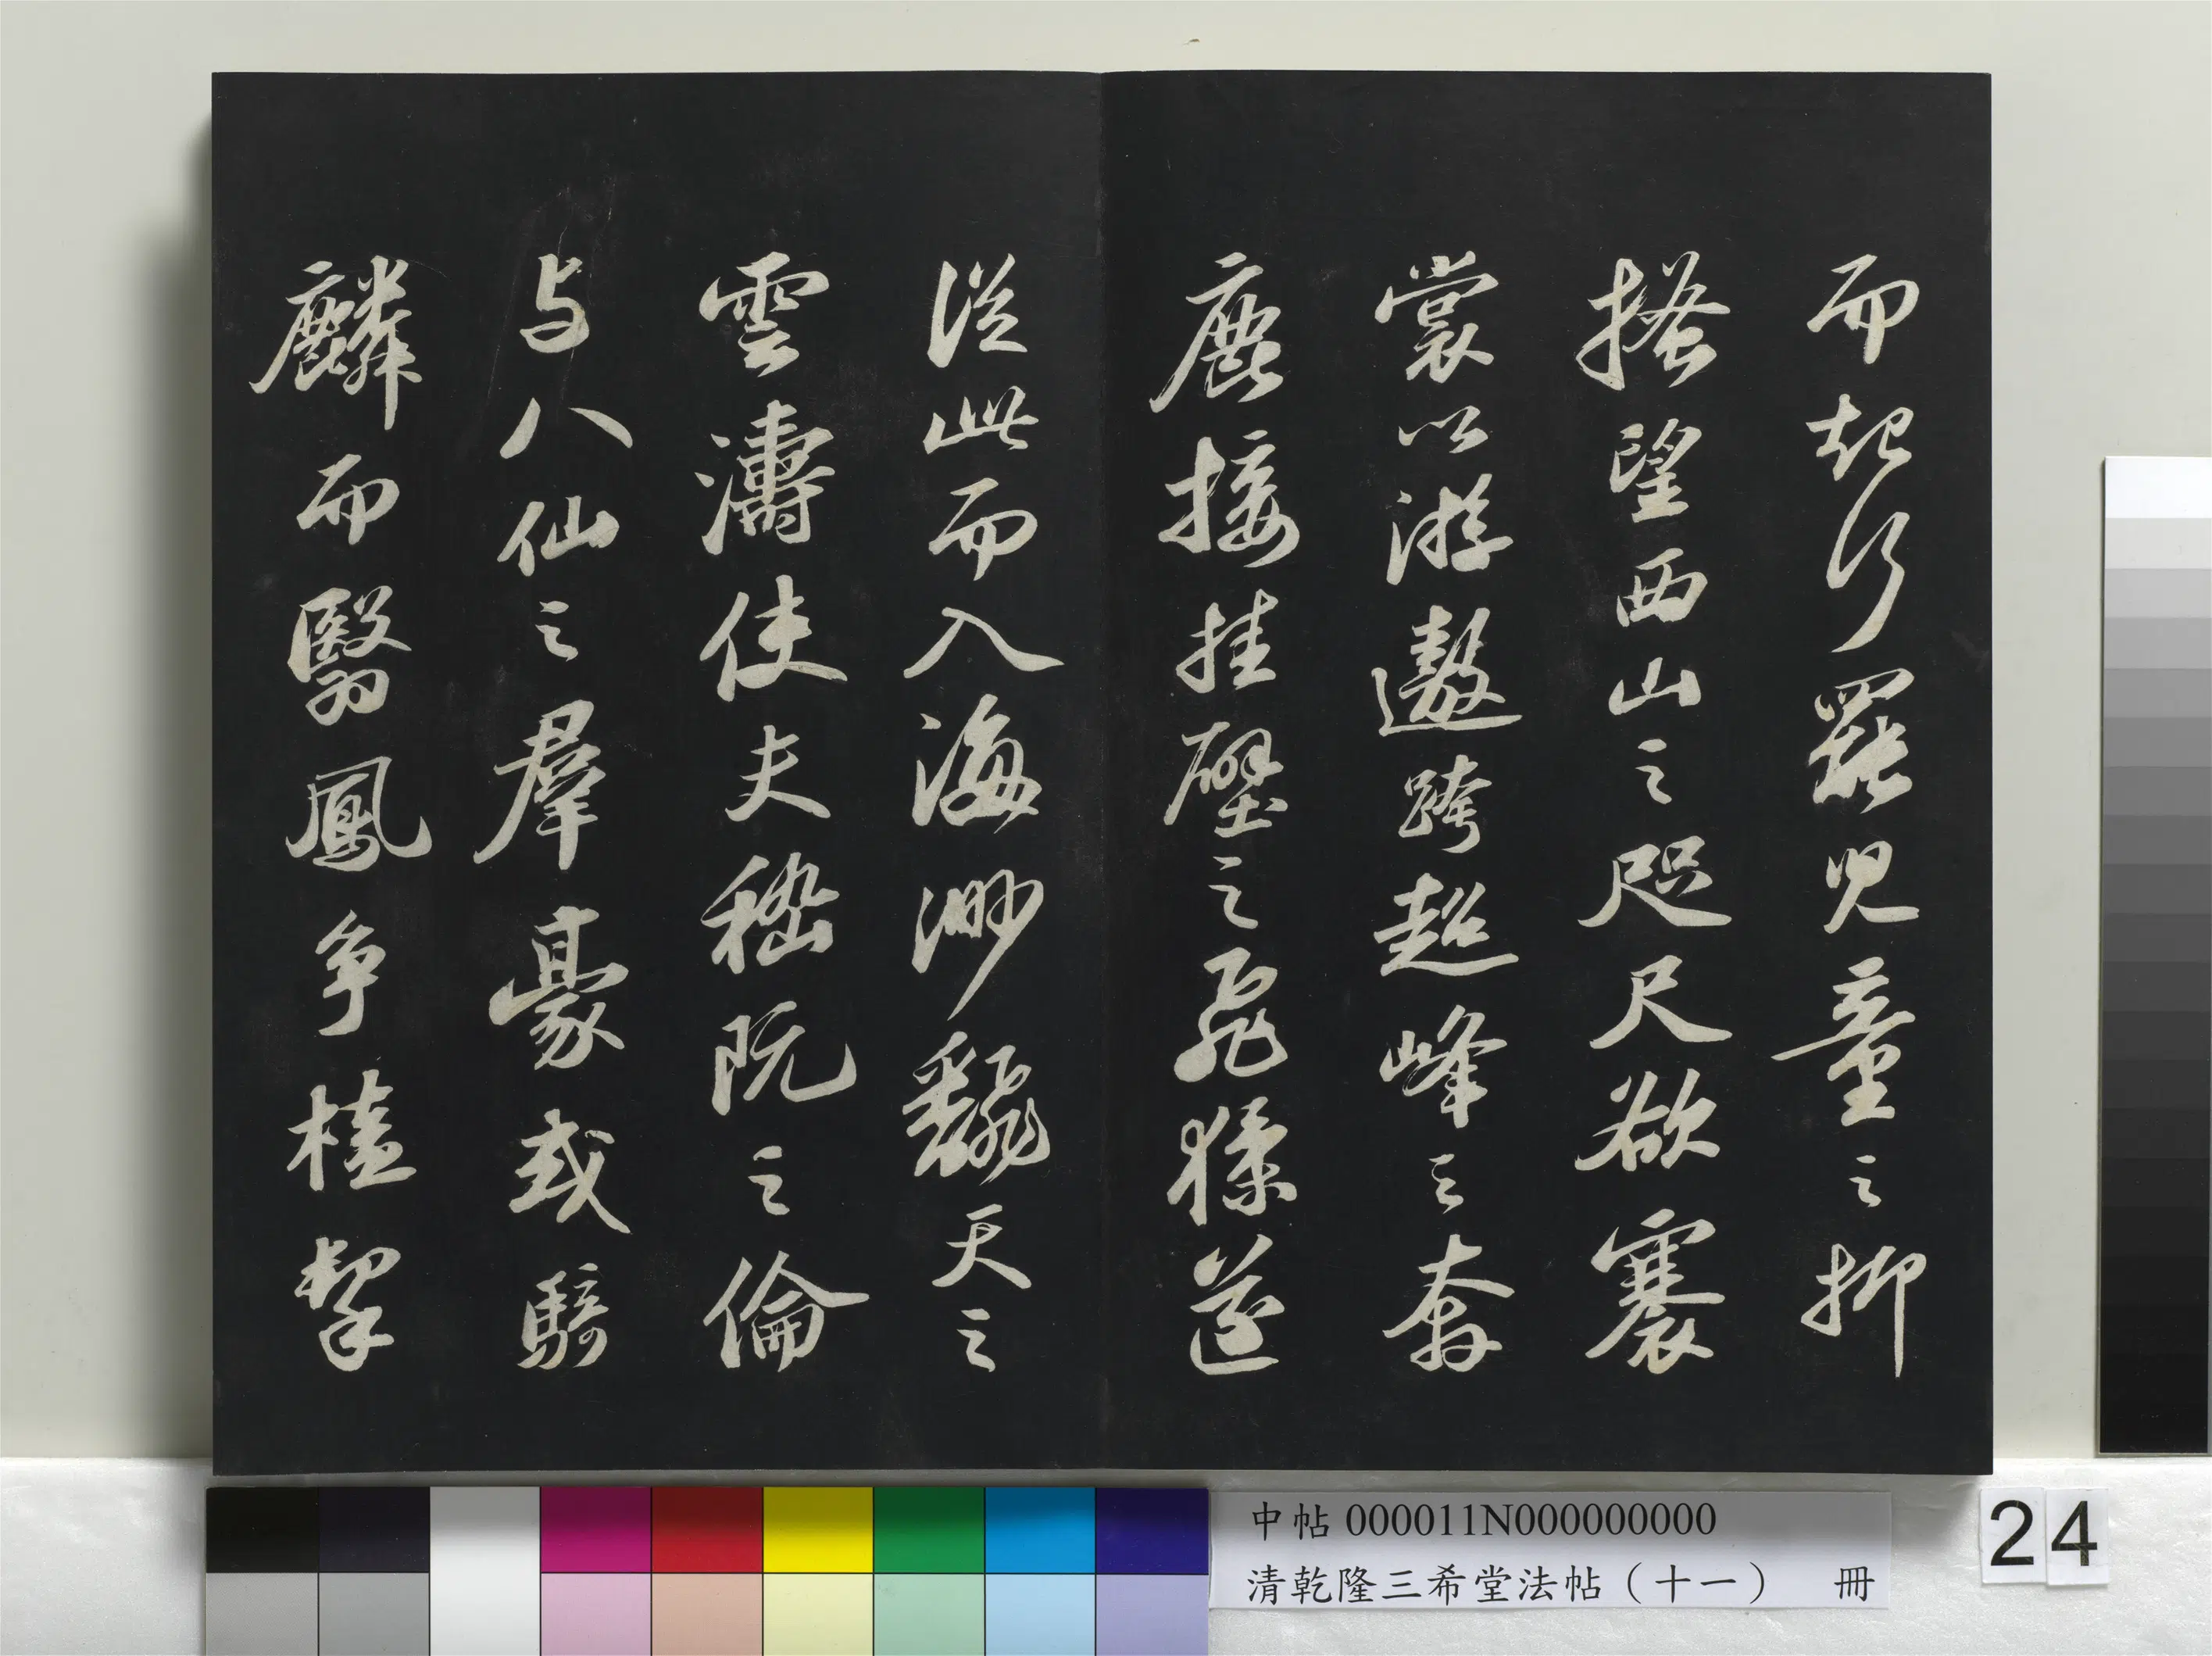 而起行罷児童之抑
搔望西山之咫尺欲褰
裳以游遨跨超峰之奔
鹿接挂壁之飛猱遂
從此而入海渺飜天之
雲濤使夫嵇阮之倫
与八仙之羣豪或騎
麟而翳鳳争榼挈
中帖 000011N000000000
清乾隆三希堂法帖（十一） 冊
24